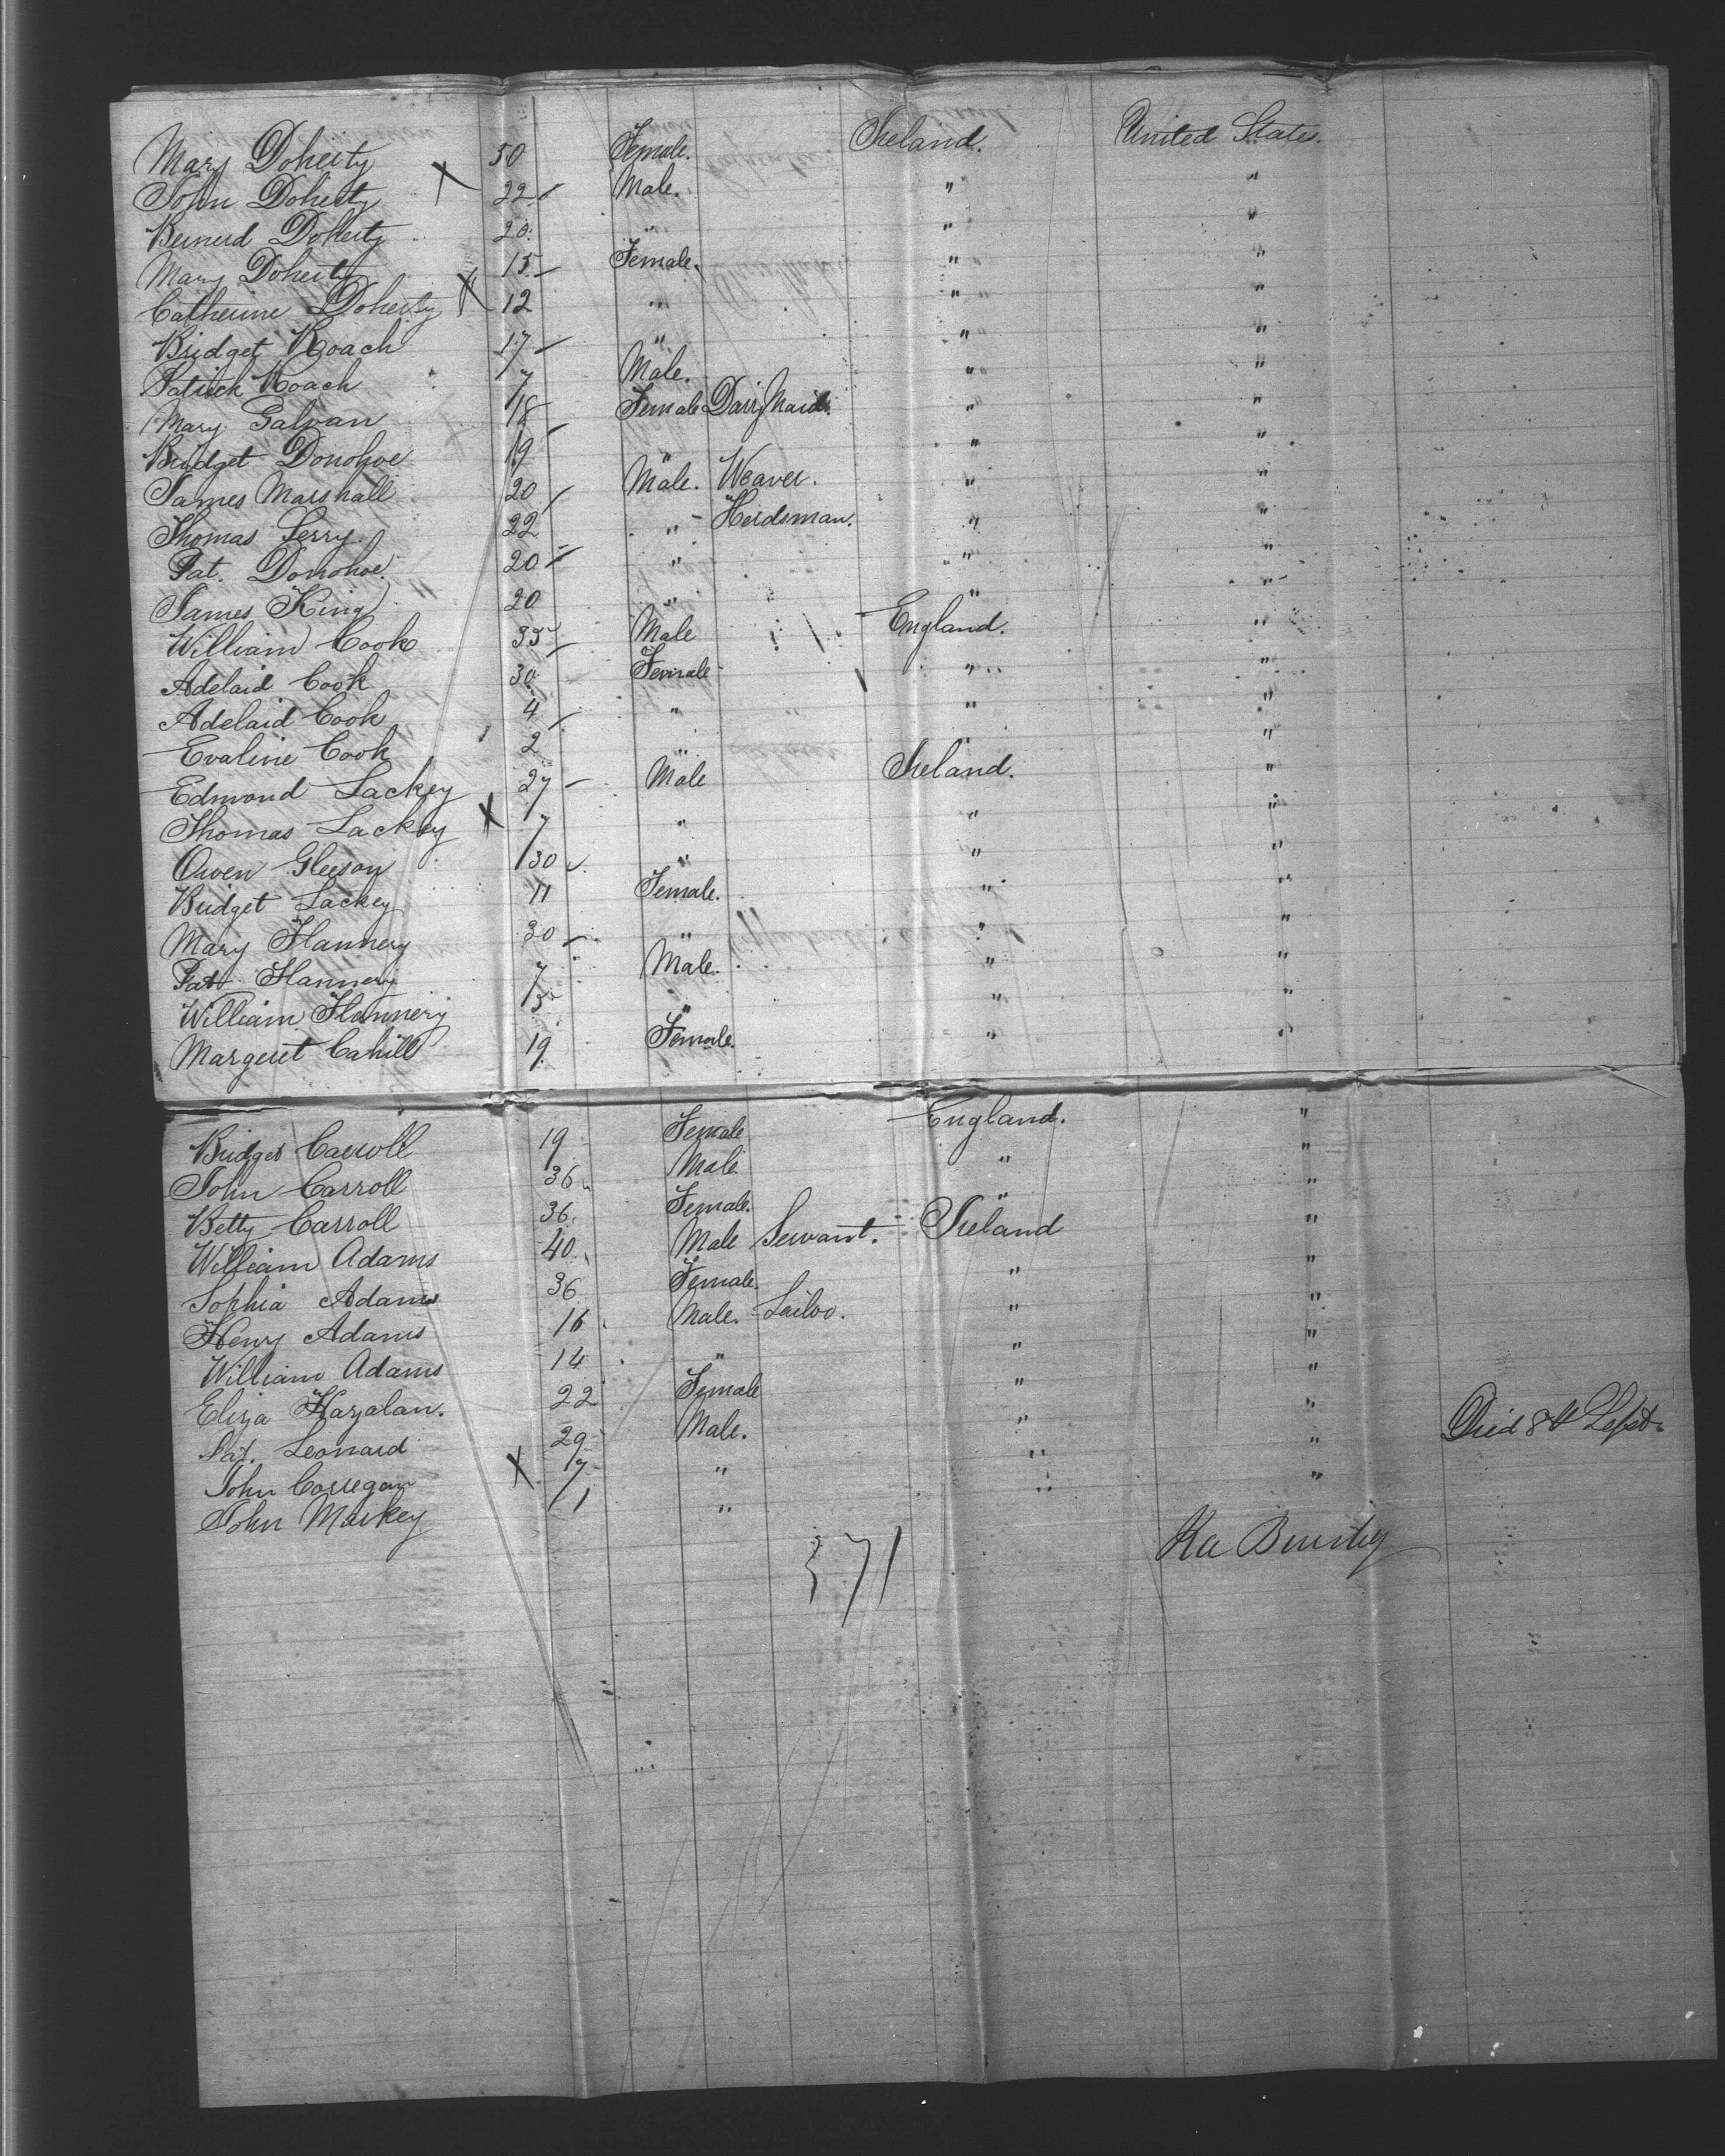 Mary Doherty 50 Female. Ireland. United States.
John Doherty X 22 Male. " "
Bernerd Doherty 20 " " "
Mary Doherty 15 Female. " "
Catherine Doherty X 12 " " "
Bridget Roach 17 " " "
Patrick Roach 7 Male. " "
Mary Galvan 18 Female Dairy Maid. " "
Bridget Donohoe 19 " " "
James Marshall 20 Male. Weaver. " "
Thomas Serry 22 " Herdsman. " "
Pat. Donohoe. 20 " " "
James King 20 " " "
William Cook 35 Male England. "
Adelaid Cook 30 Female " "
Adelaid Cook 4 " " "
Evaline Cook 2 " " "
Edmond Lackey 27 Male Ireland. "
Thomas Lackey X 7 " " "
Owen Gleeson 30 " " "
Bridget Lackey 11 Female. " "
Mary Flannery 30 " " "
Pat Flannery 7 Male. " "
William Flannery 5 " " "
Margeret Cahill 19 Female. " "
Bridget Carroll 19 Female England. "
John Carroll 36 Male " "
Betty Carroll 36 Female. " "
William Adams 40 Male Servant. Ireland "
Sophia Adams 36 Female. " "
Henry Adams 16 Male. " "
William Adams 14 " " "
Eliza 22 Female " "
Pat. Leonard 29 Male. " " Died 8th Sept.
John Corregan X 7 " " "
John Markey 1 " " "
71